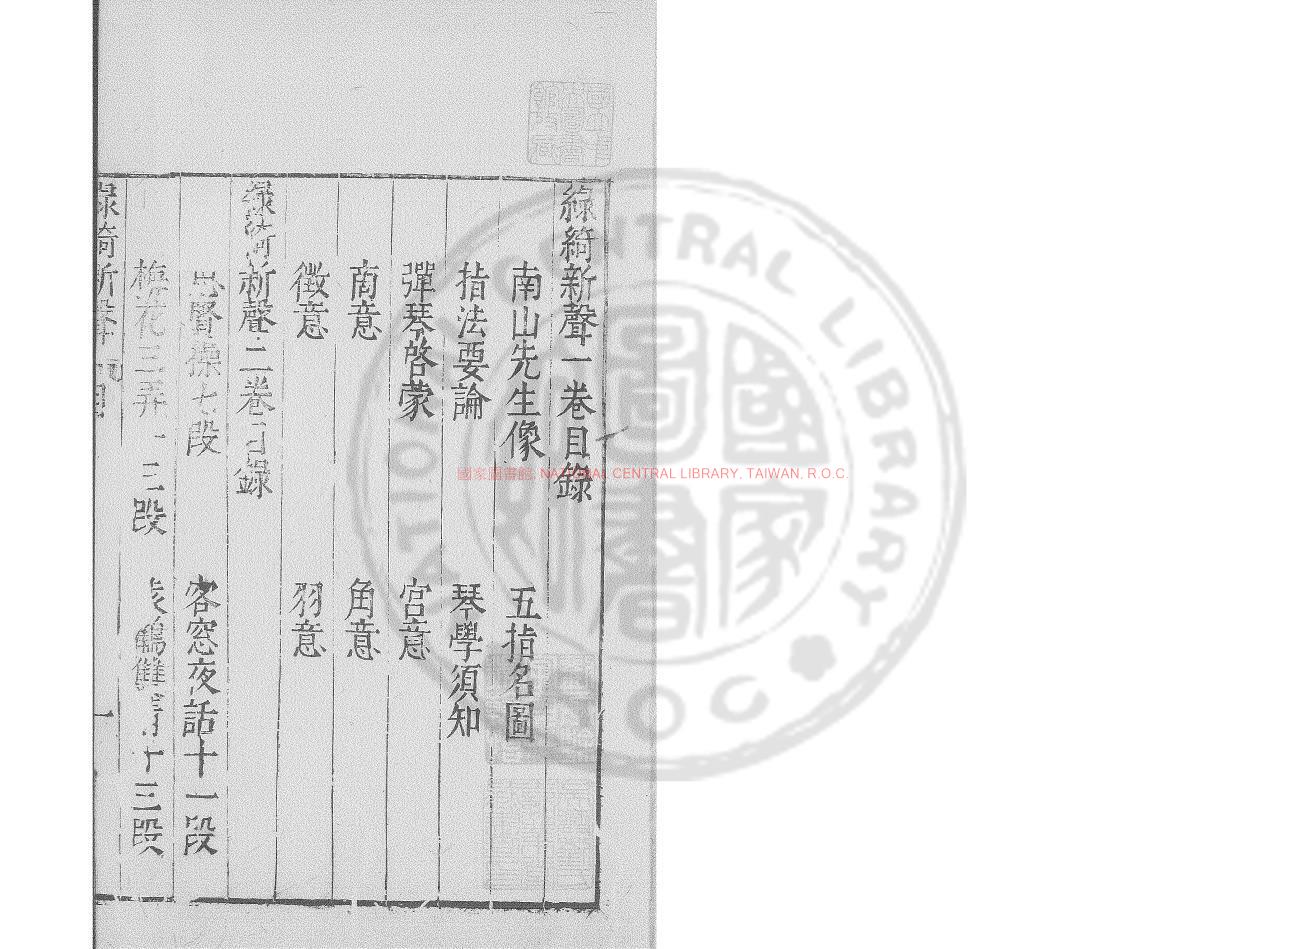 綠綺新聲一卷目錄
南山先生像 五指名圖
指法要論 琴學須知
彈琴啓蒙 宮意
商意 角意
徵意 羽意
綠綺新聲二卷目錄
思賢操七段 客窓夜話十一段
梅花三弄十三段 鶴雙清十三段
綠綺新聲 目 一
國家圖書館, NATIONAL CENTRAL LIBRARY, TAIWAN, R.O.C.
NATIONAL CENTRAL LIBRARY
R.O.C.
國家圖書